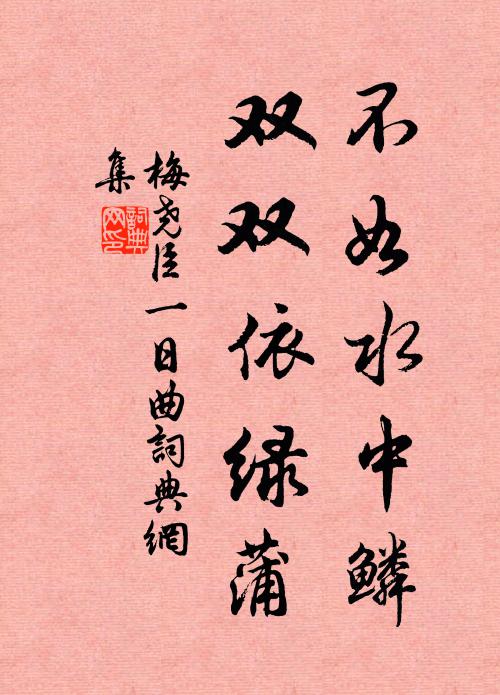 不如水中鳞
双双依绿蒲
梅尧臣一日曲詞典網
集
詞典网印